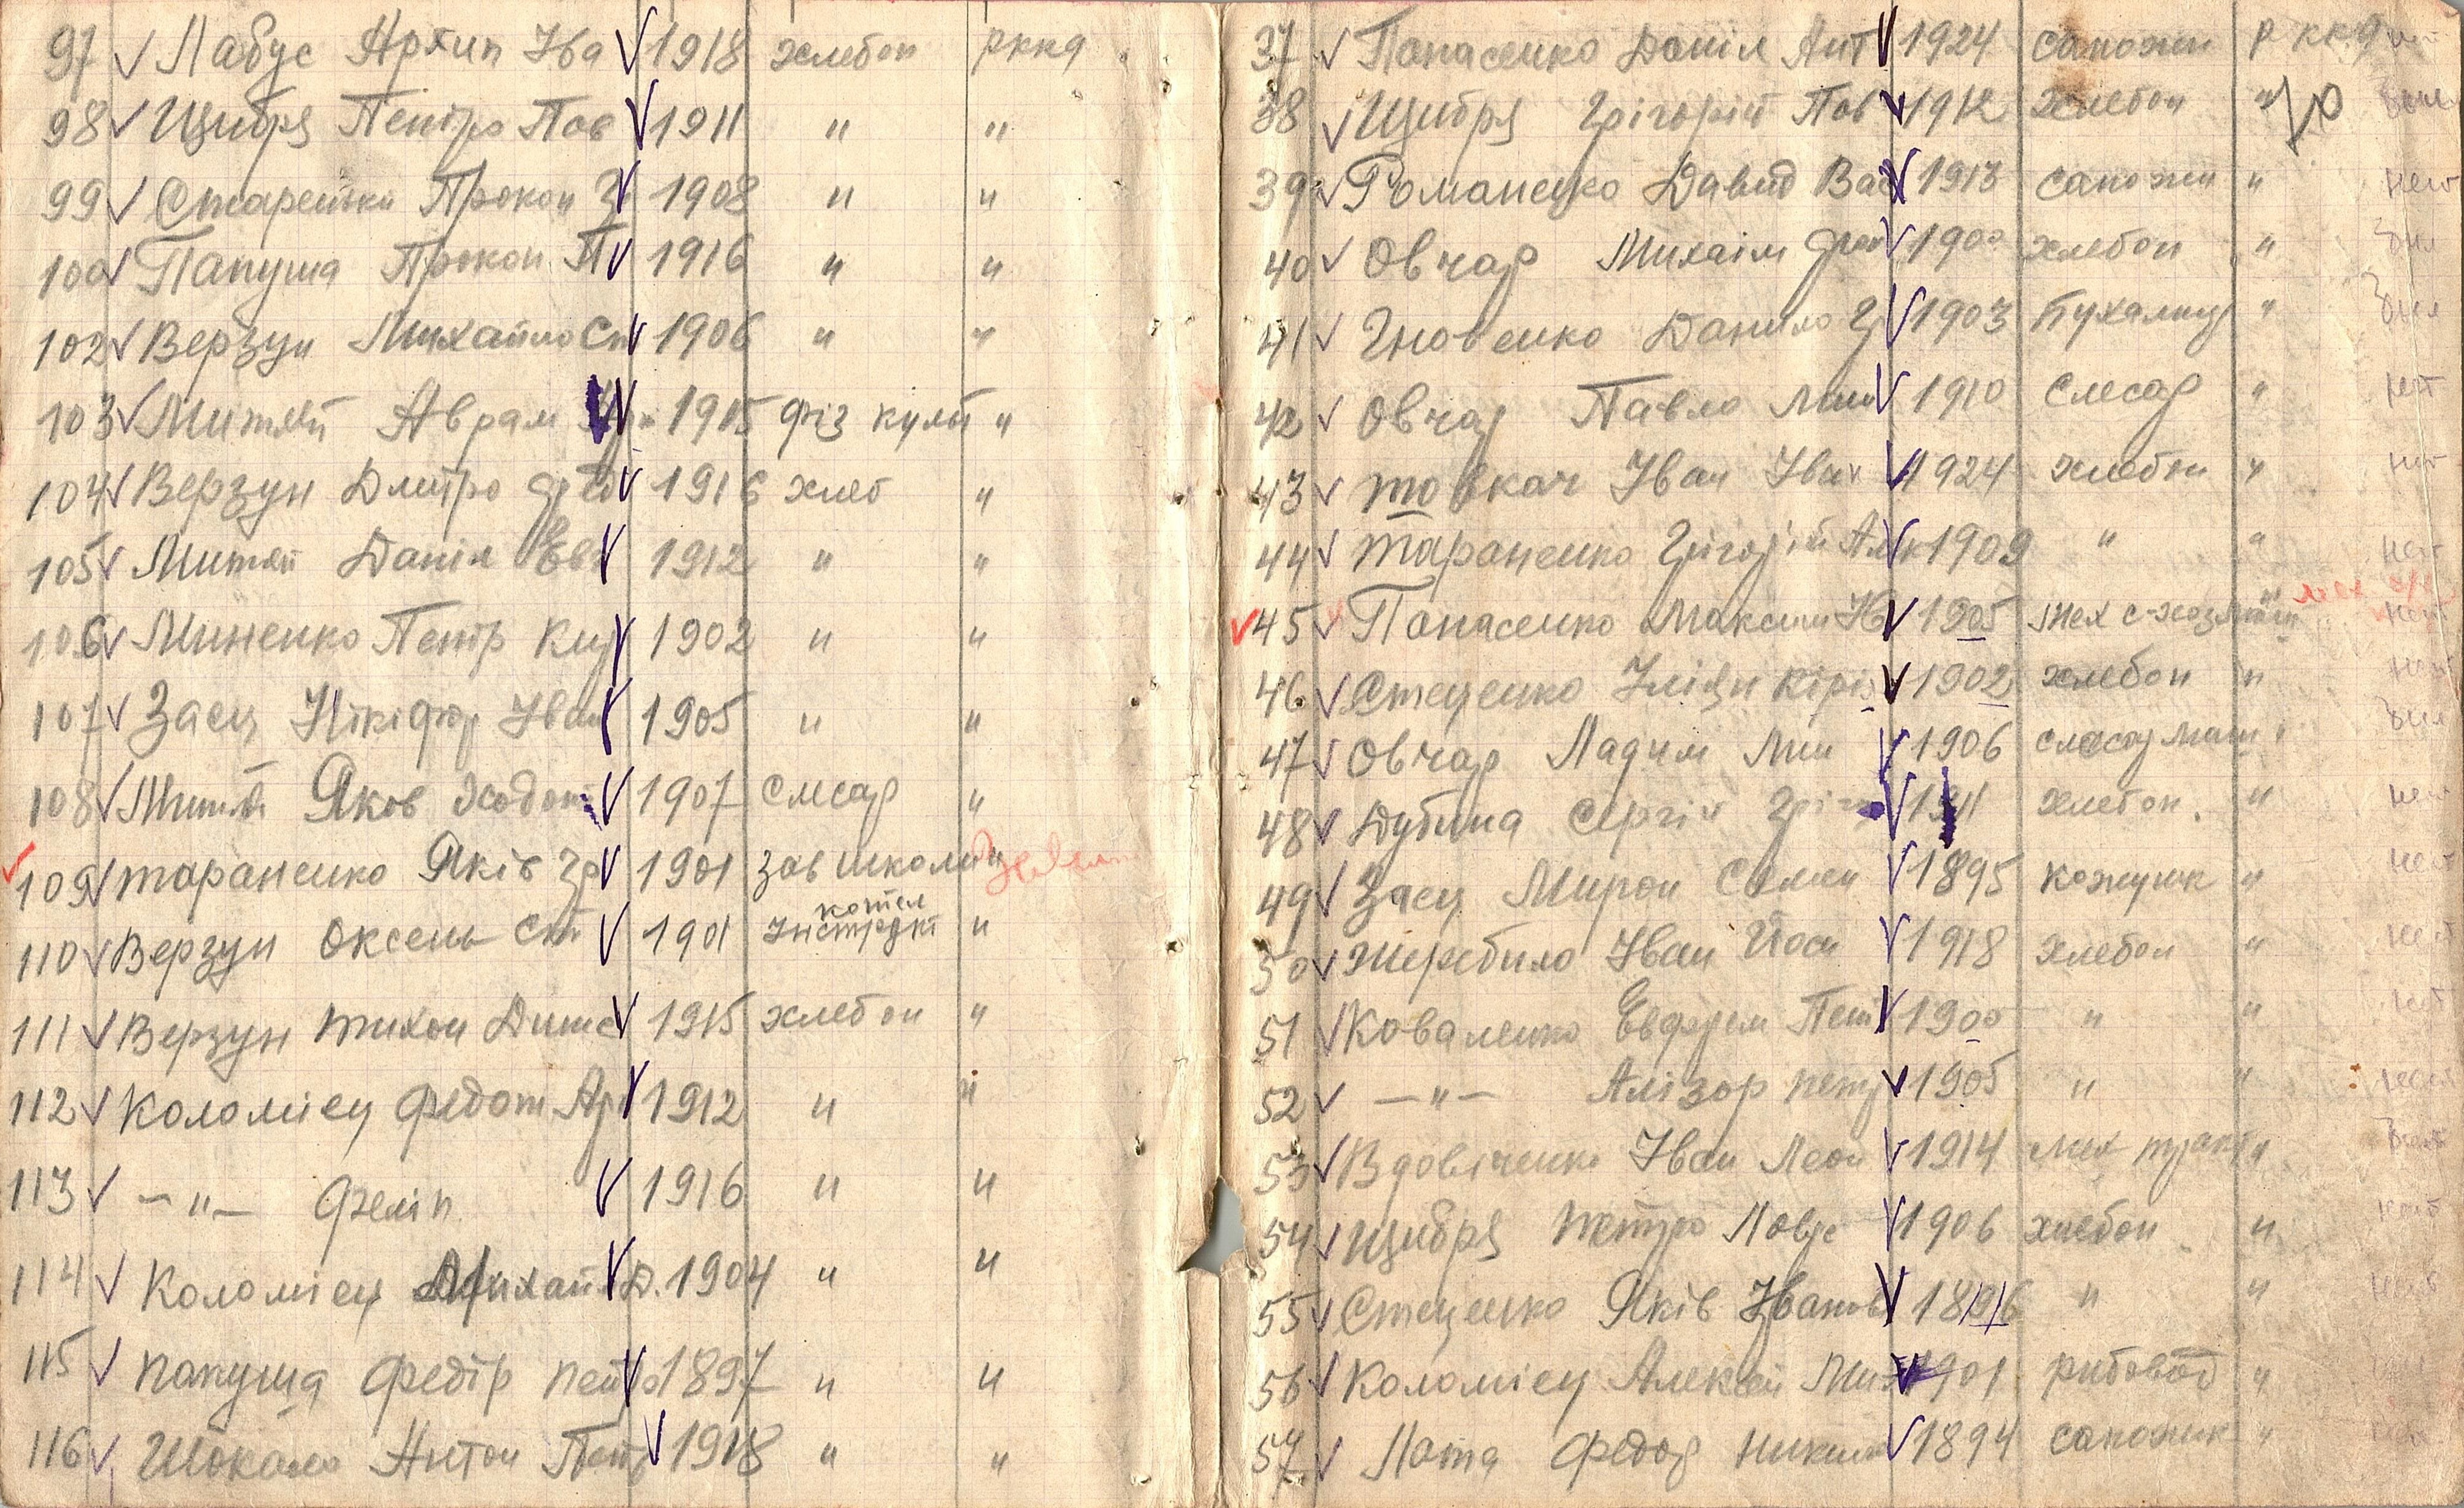 97 ✓ Лабус Архип Іва ✓ 1918 хлебоп рккa
98 ✓ Щибря Пентро Пав ✓ 1911 " "
99 ✓ Старенький Прокоп ✓ 1908 " "
100 ✓ Папуша Прокоп П ✓ 1916 " "
102 ✓ Верзун Михайло Ст ✓ 1906 " "
103 ✓ Митяй Аврам ✓ 1905 фіз культ "
104 ✓ Верзун Дмитро Фед ✓ 1916 хлеб "
105 ✓ Митяй Даніл Евг ✓ 1912 " "
106 ✓ Миненко Петр Кир ✓ 1902 " "
107 ✓ Заец Нікіфор Іван ✓ 1905 " "
108 ✓ Митяй Яков Ходот ✓ 1907 слесар "
✓ 109 ✓ тараненко Яків Гр ✓ 1901 зав школи "
110 ✓ Верзун Оксень Ст ✓ 1901 "
111 ✓ Верзун тихон Дим ✓ 1915 хлебоп "
112 ✓ Коломієц Федот Ар ✓ 1912 " "
113 ✓ — " — Феліп ✓ 1916 " "
114 ✓ Коломієц Михайл ✓ Д. 1904 " "
115 ✓ папуша Федір петро ✓ 1897 " "
116 ✓ Шокало Антон Петр ✓ 1918 " "
37 ✓ Панасенко Даніл Ант ✓ 1924 сапожн рккa нет
38 ✓ Щибря Грігорій Пав ✓ 1912 хлебоп "
39 ✓ Романенко Давид Вас ✓ 1913 сапожн " нет
40 ✓ Овчар Михаіл ✓ 1900 хлебоп " бил
41 ✓ Гновенко Данило Г ✓ 1903 " бил
42 ✓ Овчар Павло Мих ✓ 1910 слесар " нет
43 ✓ товкач Іван Іван ✓ 1924 хлебоп " нет
44 ✓ тараненко Грігорій Ал ✓ 1909 " " нет
✓ 45 ✓ Панасенко Максим ✓ 1905 мех с-хоз " нет
46 ✓ Стеценко Кіріл ✓ 1902 хлебоп " нет
47 ✓ Овчар Ладим Мих ✓ 1906 слесар маш " бил
48 ✓ Дубина Сергій Грігор ✓ 1911 хлебоп. " нет
49 ✓ Заец Мирон Семен ✓ 1895 кожушн " нет
50 ✓ Жеребило Іван Йоси ✓ 1918 хлебоп " нет
51 ✓ Коваленко Евфрем Пет ✓ 1900 " " нет
52 ✓ — " — Алізор петр ✓ 1905 " " нет
53 ✓ Вдовіченко Іван Леон ✓ 1914 мех тракт "
54 ✓ Щибря Петро Лавр ✓ 1906 хлебоп " нет
55 ✓ Стеценко Яків Іванов ✓ 1896 " " нет
56 ✓ Коломієц Алексей Мих ✓ 1901 рибовод "
57 ✓ Лата Федор Никит ✓ 1894 сапожник "